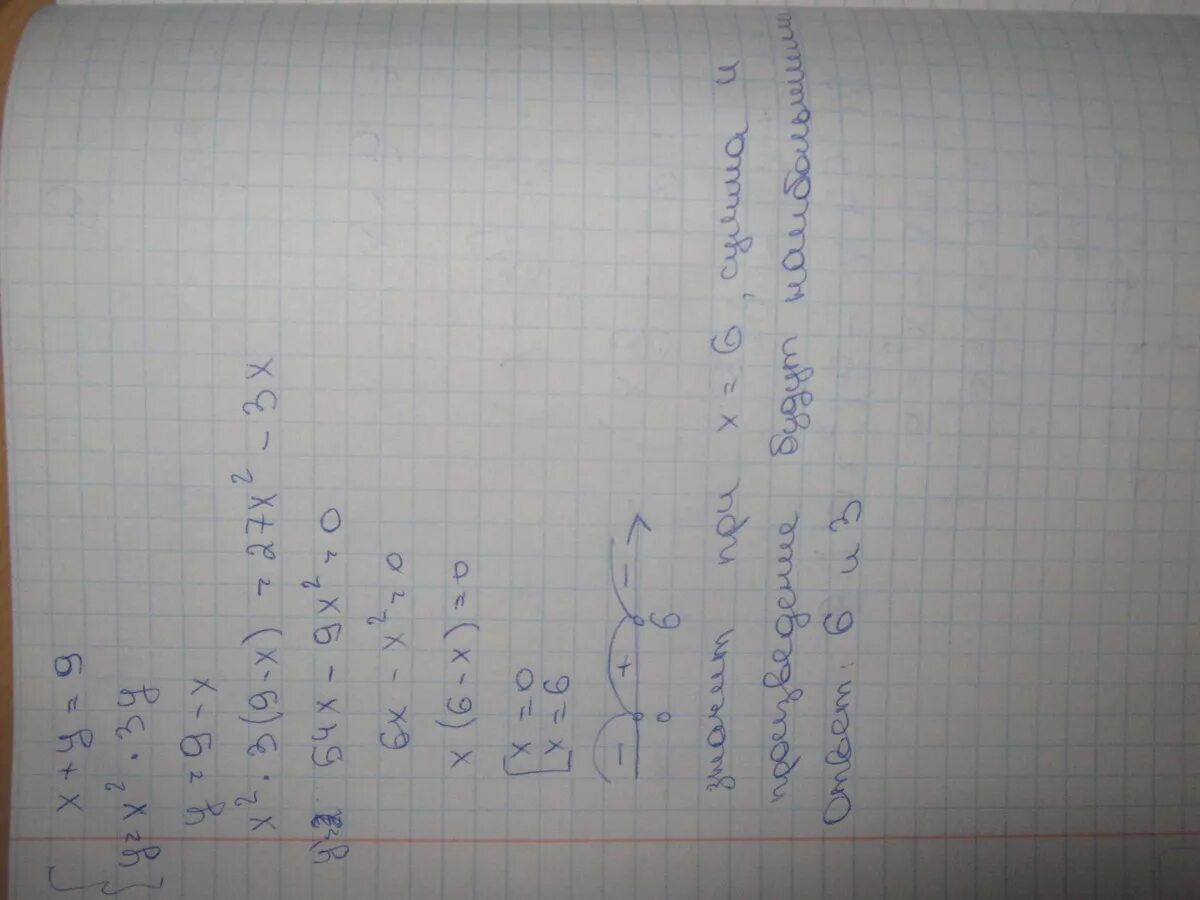 x + y = 9
y = x² · 3y
y = 9 - x
x² · 3(9-x) = 27x² - 3x
y' = 54x - 9x² = 0
6x - x² = 0
x(6-x) = 0
x = 0
x = 6
- + -
0 6
значит при x = 6, сумма и
произведение будут наибольшими
Ответ: 6 и 3